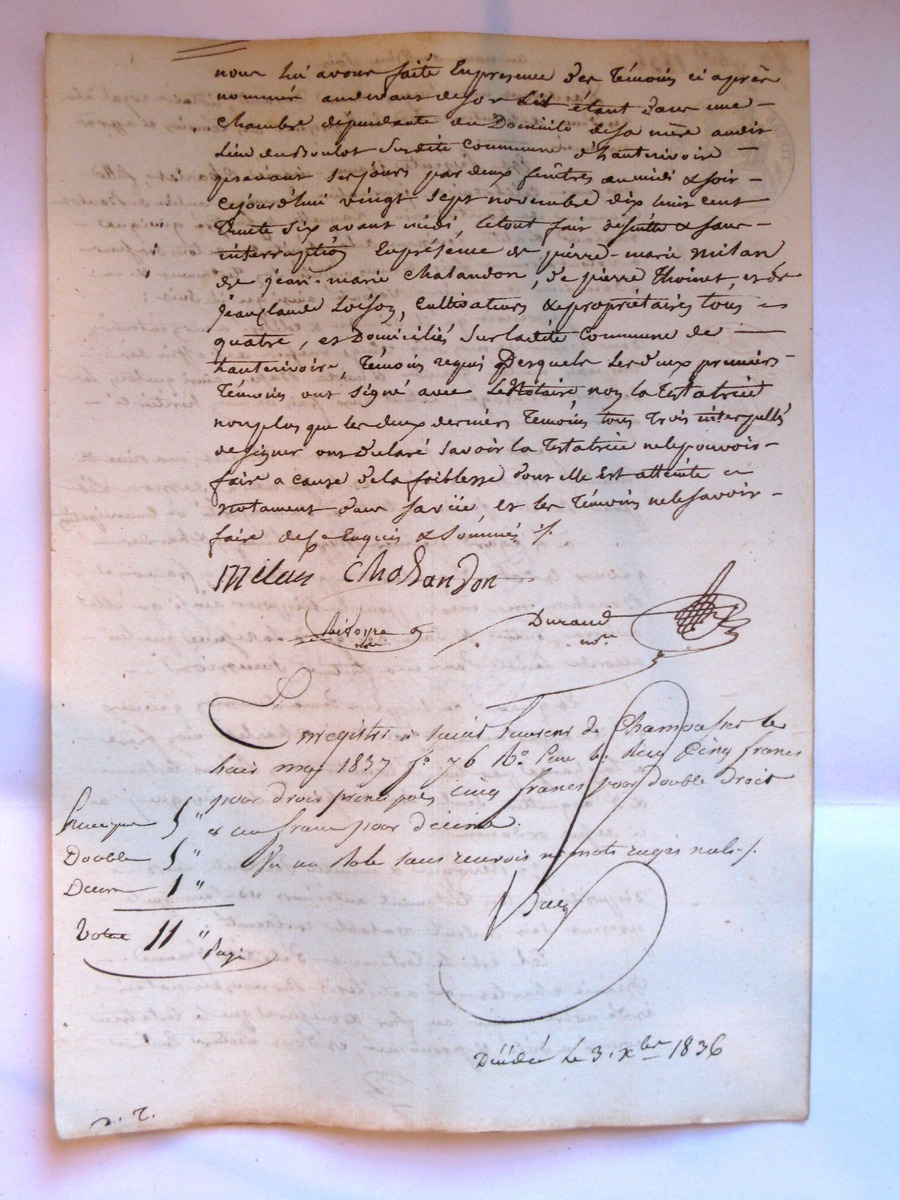 nous lui avons faite En presence Des Témoins ci après
nommés au devant de son Lit étant dans une
chambre dépendante du Domicile de sa mère audit
Lieu du Boulot Susdite Commune d'hauterivoire
prenant ses jours par deux fenêtres au midi & soir
Cejourd'hui vingt sept novembre dix huit cent
trente six avant midi, le tout fait de suitte & sans
interruption En présence de pierre-marie milan
de jean-marie chalandon, de pierre thoinet, et de
jean claude Loison, Cultivateurs & propriétaires tous
quatre, et Domiciliés Sur ladite Commune de
hauterivoire, Témoins requis Desquels Les deux premiers
Témoins ont signé avec Le Notaire non la Testatrice
non plus que les deux derniers Témoins tous Trois interpellés
de signer ont Déclaré Savoir la Testatrice ne le pouvoir
faire a cause de la foiblesse dont elle Est atteinte
notament dans sa vüe, et les Témoins ne le Savoir
faire de ce Enquis & Sommés ./.
Milan Chalandon
Durand
nore
Enregistré à Saint Laurent de Chamousset le
huit mai 1837 fo 76 Ro Cinq francs
pour droit principal, cinq francs pour double Droit
& un franc pour décime.
Principal 5 "
Double 5 "
Decime 1 "
Total 11 "
un Role sans renvois ni mots rayés nuls ./.
Décédée Le 3. xbre 1836